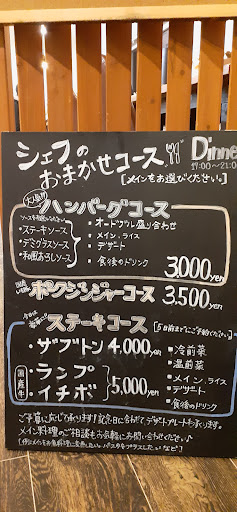 シェフの
おまかせコース
Dinne
17:00〜21:0
[メインをお選びください。]
大人気!!
ハンバーグコース
ソースをお選びください
・ステーキソース
・デミグラスソース
・和風おろしソース
・オードブル盛り合わせ
・メイン、ライス
・デザート
・食後のドリンク
3,000yen
国産
ポークジンジャーコース 3,500yen
ステーキコース
[5日前までにご予約ください。]
・ザブトン 4,000yen
国産牛
・ランプ
・イチボ
5,000yen
・冷前菜
・温前菜
・メイン、ライス
・デザート
・食後のドリンク
ご予算に応じて承ります!記念日に合わせてデザートプレートも承ります。
メイン料理のご相談もお気軽にお問い合わせください♪
(例)メインをお魚料理に変更したい。パスタをプラスしたい!など)